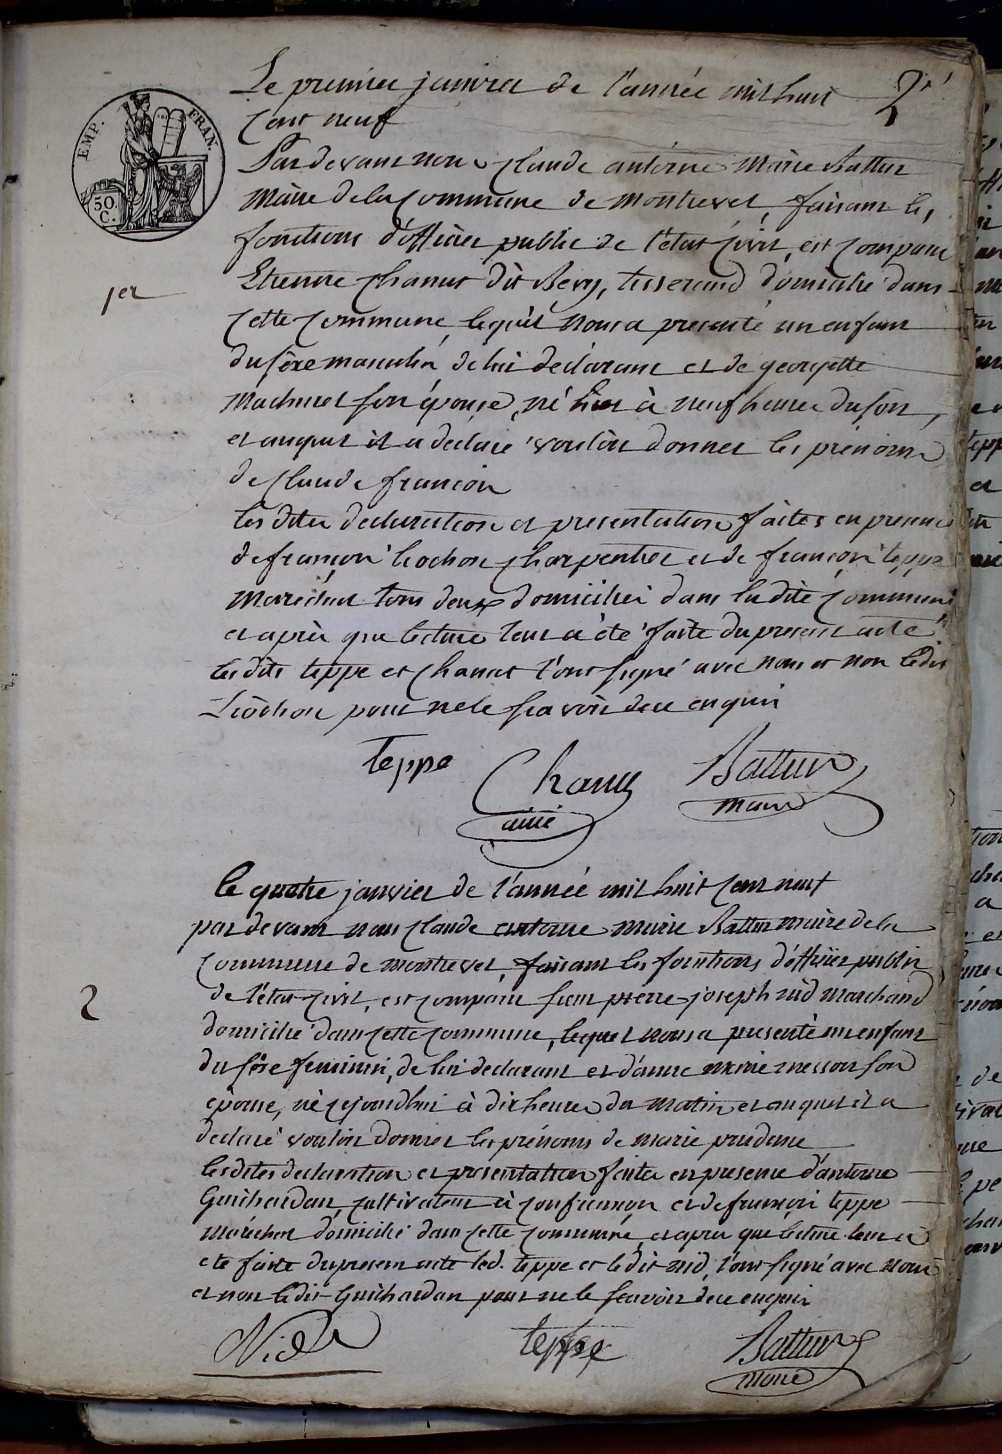 Le premier janvier de l'année mil huit
2e
cent neuf
EMP. FRAN.
50. C.
Par devant nous Claude antoine Marie Battur
Maire de la Commune de Montrevel, faisant les
fonctions d'officier public de l'état civil, est comparu
Etienne Chanut dit Bery, tisserand domicilié dans
1er
cette commune lequel nous a presenté un enfant
du sexe masculin de lui déclarant et de georgette
Machuret son épouse, né hier à neuf heures du soir,
et auquel il a déclaré vouloir donner les prénoms
de Claude françois
les dites declaration et presentation faites en presence
de françois Liochon Charpentier et de françois teppe
Maréchal tous deux domiciliés dans la dite commune
et après que lecture leur a été faite du present acte
lesdits teppe et Chanut l'ont signé avec nous et non ledit
Liochon pour ne le scavoir de ce enquis
teppe
Chanut
ainé
Battur
maire
le quatre janvier de l'année mil huit cent neuf
par devant nous Claude antoine marie Battur maire de la
Commune de montrevel, faisant les fonctions d'officier public
2
de l'état civil, est comparu sieur pierre joseph nid marchand
domicilié dans cette commune, lequel nous a presenté un enfant
du sexe feminin, de lui declarant et d'anne marie messon son
epouse, né cejourdhui à dix heures du matin et auquel il a
declaré vouloir donner les prénoms de marie prudence
lesdites declaration et presentation faites en presence d'antoine
Guichardan cultivateur à confrançon et de françois teppe
maréchal domicilié dans cette commune, et après que lecture leur a
eté faite du present acte led. teppe et ledit nid, l'ont signé avec nous
et non ledit Guichardan pour ne le scavoir de ce enquis
Nid
teppe
Battur
maire